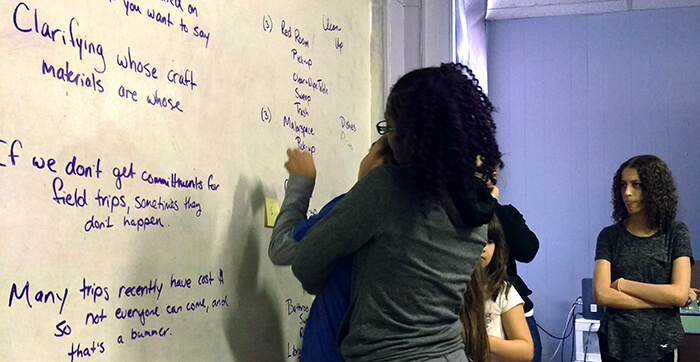 on
you want to say
Clarifying whose craft
materials are whose
If we don't get committments for
field trips, sometimes they
don't happen.
Many trips recently have cost $
so not everyone can come, and
that's a bummer.
(3) Red Room
Pick-up
Clear + Wipe Table
Sweep
Trash
(3) Makerspace
Pick-up
Clean
Up
Dishes